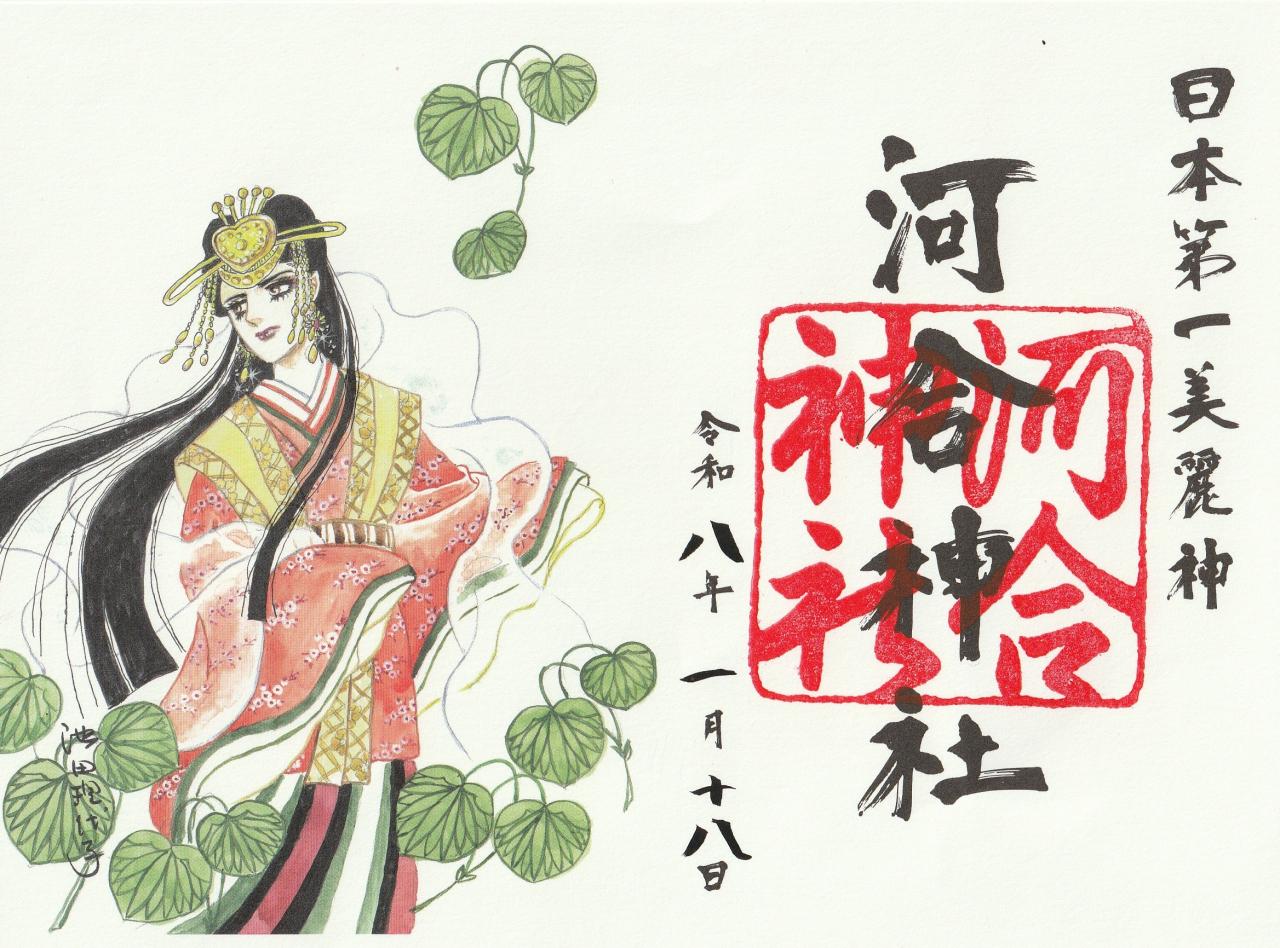 日本第一美麗神
河合神社
河合
神社
令和八年一月十八日
池田理代子